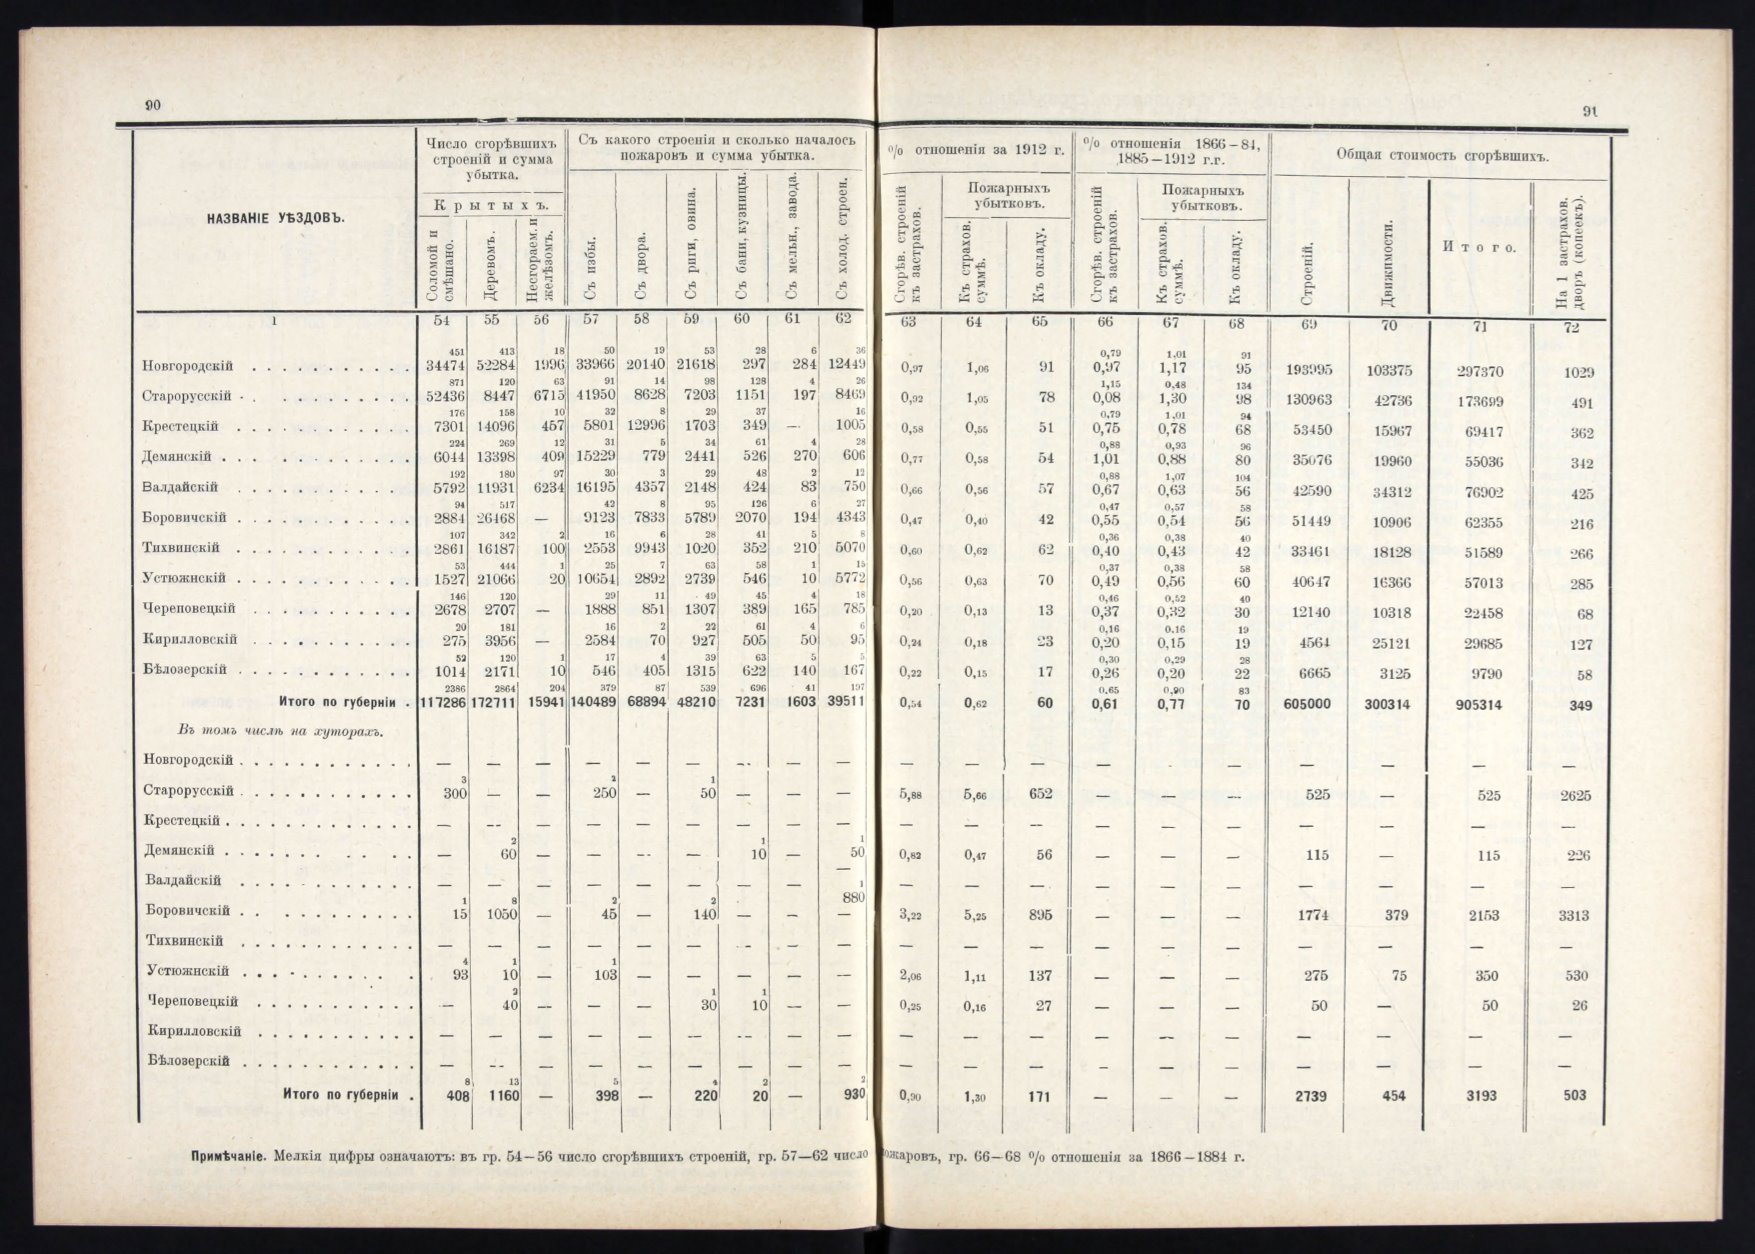 90
91
НАЗВАНІЕ УѢЗДОВЪ.
Число сгорѣвшихъ строеній и сумма убытка.
Крытыхъ.
Соломой и смѣшано.
Деревомъ.
Несгораем. и желѣзомъ.
Съ какого строенія и сколько началось пожаровъ и сумма убытка.
Съ избы.
Съ двора.
Съ риги, овина.
Съ бани, кузницы.
Съ мельн., завода.
Съ холод. строен.
% отношенія за 1912 г.
Сгорѣв. строеній къ застрахов.
Пожарныхъ убытковъ.
Къ страхов. суммѣ.
Къ окладу.
% отношенія 1866–84, 1885–1912 г.г.
Сгорѣв. строеній къ застрахов.
Пожарныхъ убытковъ.
Къ страхов. суммѣ.
Къ окладу.
Общая стоимость сгорѣвшихъ.
Строеній.
Движимости.
Итого.
На 1 застрахов. дворъ (копеекъ).
1 54 55 56 57 58 59 60 61 62 63 64 65 66 67 68 69 70 71 72
451 413 18 50 19 53 28 6 36 0,79 1,01 91
Новгородскій 34474 52284 1996 33966 20140 21618 297 284 12449 0,97 1,06 91 0,97 1,17 95 193995 103375 297370 1029
871 120 63 91 14 98 128 4 26 1,15 0,48 134
Старорусскій 52436 8447 6715 41950 8628 7203 1151 197 8469 0,92 1,05 78 0,08 1,30 98 130963 42736 173699 491
176 158 10 32 8 29 37 16 0,79 1,01 94
Крестецкій 7301 14096 457 5801 12996 1703 349 — 1005 0,58 0,55 51 0,75 0,78 68 53450 15967 69417 362
224 269 12 31 5 34 61 4 28 0,88 0,93 96
Демянскій 6044 13398 409 15229 779 2441 526 270 606 0,77 0,58 54 1,01 0,88 80 35076 19960 55036 342
192 180 97 30 3 29 48 2 12 0,88 1,07 104
Валдайскій 5792 11931 6234 16195 4357 2148 424 83 750 0,66 0,56 57 0,67 0,63 56 42590 34312 76902 425
94 517 42 8 95 126 6 27 0,47 0,57 58
Боровичскій 2884 26468 — 9123 7833 5789 2070 194 4343 0,47 0,40 42 0,55 0,54 56 51449 10906 62355 216
107 342 2 16 6 28 41 5 8 0,36 0,38 40
Тихвинскій 2861 16187 100 2553 9943 1020 352 210 5070 0,60 0,62 62 0,40 0,43 42 33461 18128 51589 266
53 444 1 25 7 63 58 1 15 0,37 0,38 58
Устюжнскій 1527 21066 20 10654 2892 2739 546 10 5772 0,56 0,63 70 0,49 0,56 60 40647 16366 57013 285
146 120 29 11 49 45 4 18 0,46 0,52 40
Череповецкій 2678 2707 — 1888 851 1307 389 165 785 0,20 0,13 13 0,37 0,32 30 12140 10318 22458 68
20 181 16 2 22 61 4 6 0,16 0,16 19
Кирилловскій 275 3956 — 2584 70 927 505 50 95 0,24 0,18 23 0,20 0,15 19 4564 25121 29685 127
52 120 1 17 4 39 63 5 5 0,30 0,29 28
Бѣлозерскій 1014 2171 10 546 405 1315 622 140 167 0,22 0,15 17 0,26 0,20 22 6665 3125 9790 58
2386 2864 204 379 87 539 696 41 197 0,65 0,90 83
Итого по губерніи 117286 172711 15941 140489 68894 48210 7231 1603 39511 0,54 0,62 60 0,61 0,77 70 605000 300314 905314 349
Въ томъ числѣ на хуторахъ.
Новгородскій — — — — — — — — — — — — — — — — — —
3 2 1
Старорусскій 300 — — 250 — 50 — — — 5,88 5,66 652 — — — 525 — 525 2625
Крестецкій — — — — — — — — — — — — — — — — — — —
2 1 1
Демянскій — 60 — — — — 10 — 50 0,82 0,47 56 — — — 115 — 115 226
Валдайскій — — — — — — — — — — — — — — — — — — —
1 8 2 2 1
Боровичскій 15 1050 — 45 — 140 — — 880 — 3,22 5,25 895 — — — 1774 379 2153 3313
Тихвинскій — — — — — — — — — — — — — — — — — — —
4 1 1
Устюжнскій 93 10 — 103 — — — — — 2,06 1,11 137 — — — 275 75 350 530
2 1 1
Череповецкій — 40 — — — 30 10 — — 0,25 0,16 27 — — — 50 — 50 26
Кирилловскій — — — — — — — — — — — — — — — — — — —
Бѣлозерскій — — — — — — — — — — — — — — — — — — —
8 13 5 4 2 2
Итого по губерніи 408 1160 — 398 — 220 20 — 930 0,90 1,30 171 — — — 2739 454 3193 503
Примѣчаніе. Мелкія цифры означаютъ: въ гр. 54–56 число сгорѣвшихъ строеній, гр. 57—62 число пожаровъ, гр. 66–68 % отношенія за 1866–1884 г.